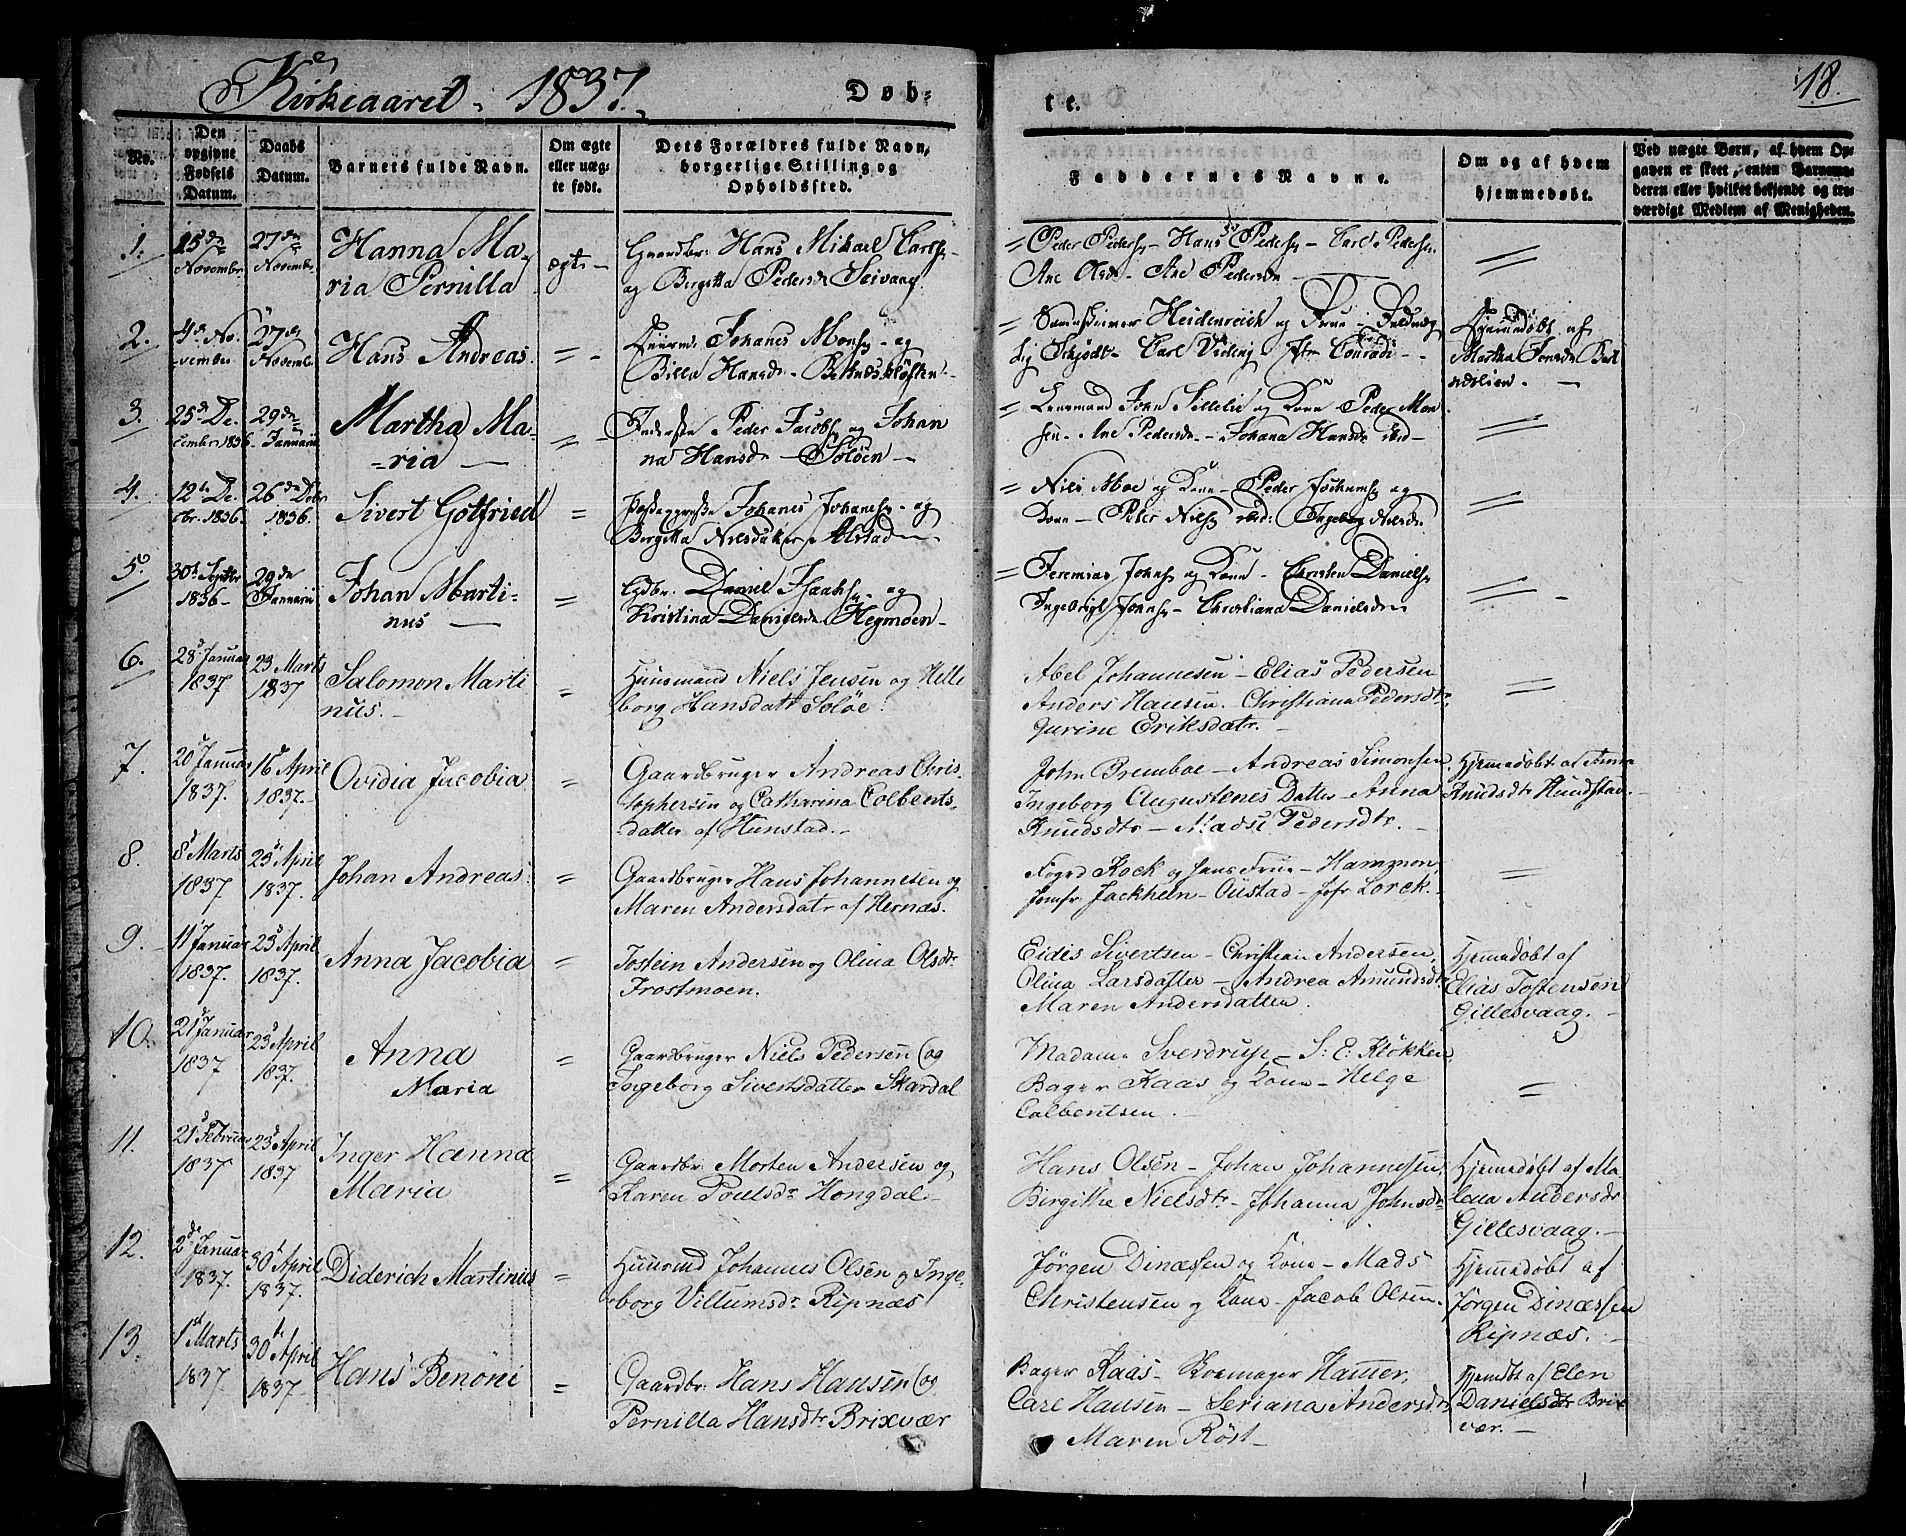 Kirkeaaret 1837.
Døb-
te.
18.
No.
Den opgivne Fødsels Datum.
Daabs Datum.
Barnets fulde Navn.
Om ægte eller uægte født.
Dets Forældres fulde Navn, borgerlige Stilling og Opholdsted.
Faddernes Navne.
Om og af hvem hjemmedøbt.
Ved uægte Børn, af hvem Opgaven er skeet, enten Barnemoderen eller hvilket bekjendt og troværdigt Medlem af Menigheden.
1.
25de Novembr
27de Novembr
Hanna Ma-
ria Pernilla
ægte
Gaardbr: Hans Mikael Carls
og Birgitta Pedersdr Seivaag
Peder Peders - Hans Peders - Carl Peders
Ane Olsdr - Ane Pedersdr
2.
4de No-
vember
27de Novemb
Hans Andreas
Johanes Mons - og
Billa Hansdr -
Sorenskriver Heidenreich og Frue
Schjødt - Carl - Jfr Conradi
Hjemmedøbt af
Martha Jensdr
3.
25de De-
cember 1836
29de Januarii
Martha Ma-
ria
Peder Jacobs og Johan
na Hansdr - Soløen
John og Kone Peder Mon
sen - Ane Pedersdr - Johana Hansdr ibid
4.
12te De-
cbr. 1836
26de Debr
1836.
Sivert Gotfried
Johanes Johans - og
Birgitta Nielsdatter Alstad
Niels Moe og Kone - Peder Jochums og
Kone - Peter Niels ibid: Ingeborg Nielsdr
5.
30te Septbr
1836
29de Januarii
Johan Marti-
nus
Gdbr: Daniel Isaaks - og
Kristina Danielsdr Hegmoen
Jeremias Johns og Kone - Christen Daniels
Ingebrigt Johns - Christiana Danielsdr
6.
28d Januar
1837
23 Marts
1837
Salomon Marti
nus.
Huusmand Niels Jensen og Helle
borg Hansdatr Soløe
Abel Johannesen - Elias Pedersen
Anders Hansen. Christiana Pedersdtr
Gurine Eriksdatr.
7.
20d Januar
1837.
16d April
1837.
Ovidia Jacobia
Gaardbruger Andreas Chris-
tophersen og Catharina Colbents-
datter af Hunstad.
John Bremboe - Andreas Simonsen
Ingeborg Augustenes Datter - Anna
Knudsdtr - Madse Pedersdtr.
Hjemedøbt af Anna
Knudsdtr Hundstad.
8.
8d Marts
1837.
23d April
1837.
Johan Andreas
Gaardbruger Hans Johannesen og
Maren Andersdatr af Hernæs.
Foged Kock og hans Frue - Hammon,
Jomfr Jackheln - Oustad - Jofr Lorck.
9.
11d Januar
1837.
23d April
1837.
Anna Jacobia
Tostein Andersen og Olina Olsdtr
Trostmoen.
Eidis Sivertsen - Christian Andersen,
Olina Larsdatter - Andrea Amundsdtr
Maren Andersdatter.
Hjemedøbt af
Elias Tostensen
Gillesvaag.
10.
21d Januar
1837
23d April
1837.
Anna
Maria
Gaardbruger Niels Pedersen og
Ingeborg Sivertsdatter Skardal
Madam Sverdrup - S: E: Klokker
Bager Kaas og Kone - Helge
Colbentsen.
11.
21d Februar
1837.
23d April
1837
Inger Hanna
Maria
Gaardbr Morten Andersen og
Karen Poulsdr Hongdal.
Hans Olsen - Johan Johannesen,
Birgithe Nielsdtr - Johanna Johnsdtr
Hjemedøbt af Ma
lena Andersdr
Gillesvaag.
12.
2de Januar
1837.
30d April
1837.
Diderich Martinus
Huusmd Johannes Olsen og Inge-
borg Villumsdr Ripnæs
Jørgen Dinæssen og Kone - Mads
Christensen og Kone - Jacob Olsen.
Hjemmedøbt af
Jørgen Dinæssen
Ripnæs.
13.
1st Marts
1837
30te April
1837
Hans Benoni
Gaardbr: Hans Hansen og
Pernilla Hansdtr Brixvær
Bager Kaas - Skomager Hatter,
Carl Hansen - Seriana Andersdtr
Maren Röst
Hjemdt af Elen
Danielsdtr Brix
vær.